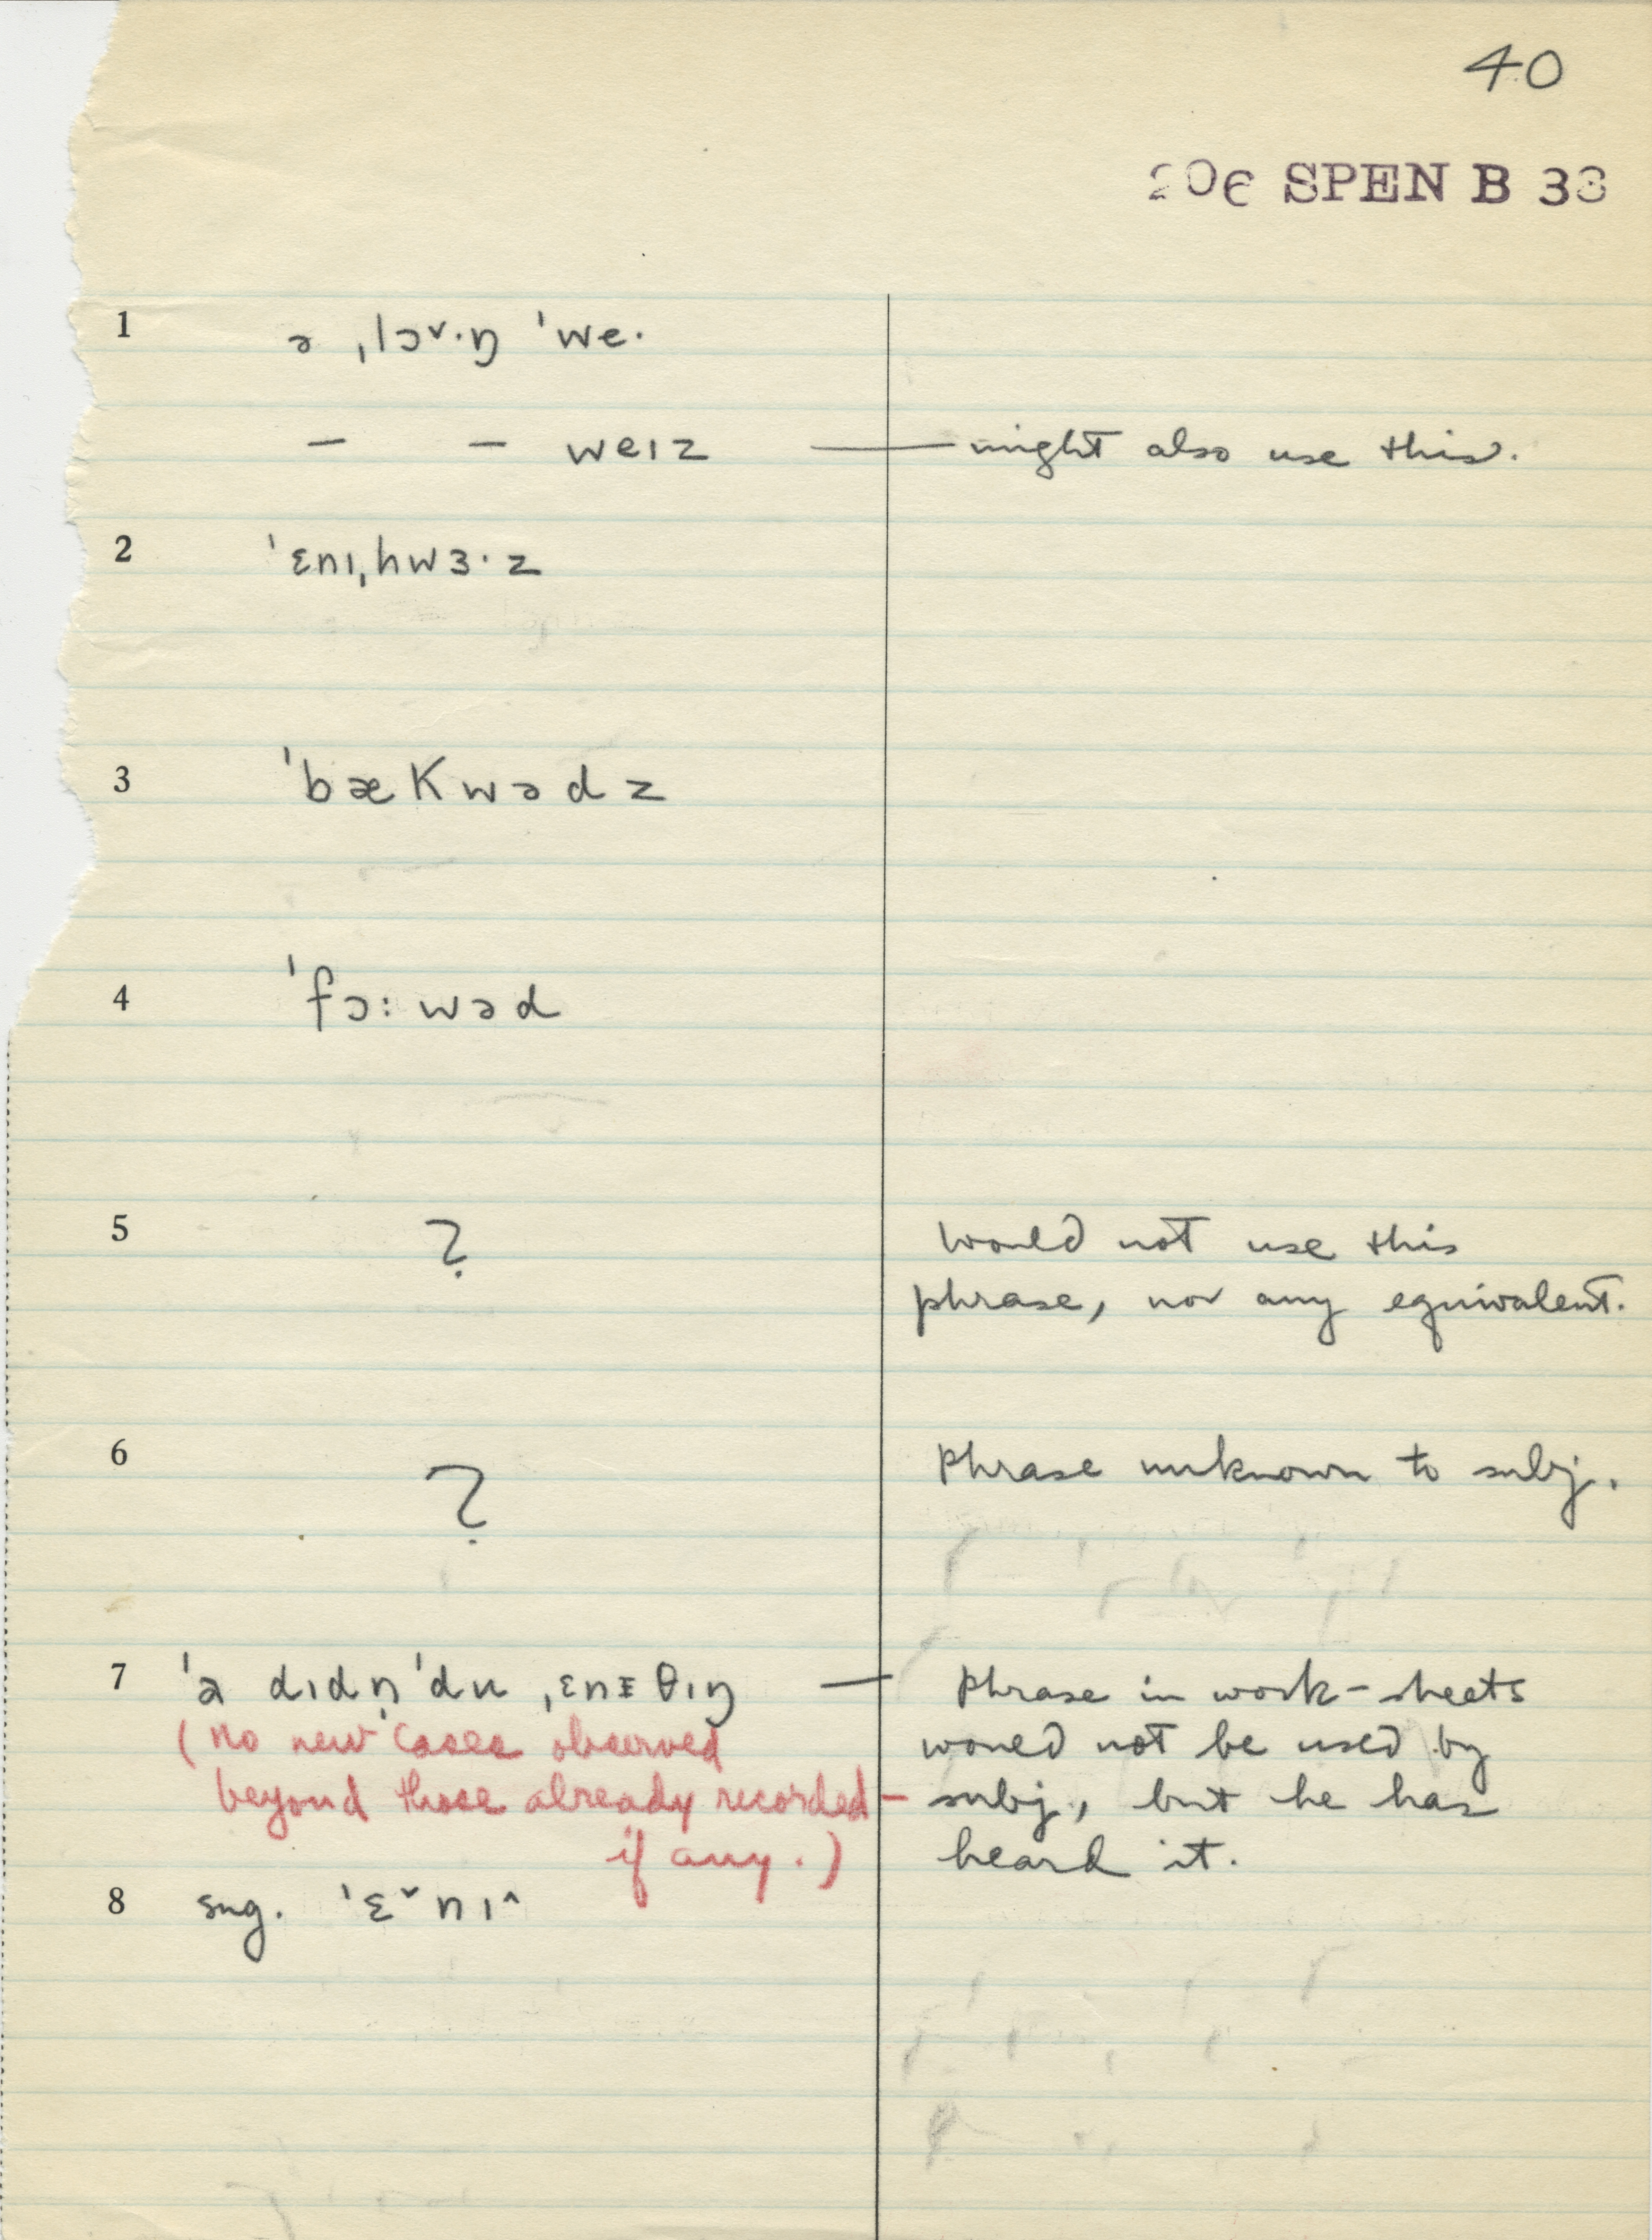 40
206 SPEN B 33
1 ə ˌlɔ˅·ŋ ˈwe·
– – weɪz — might also use this.
2 ˈɛnɪˌhwɜ·z
3 ˈbækwədz
4 ˈfɔ:wəd
5 ? would not use this
phrase, nor any equivalent.
6 ? Phrase unknown to subj.
7 ˈa dɪdn̩ ˈdu ˌɛnɪθɪŋ — Phrase in work-sheets
(no new cases observed would not be used by
beyond those already recorded – subj., but he has
if any.) heard it.
8 sug. ˈɛ˅nɪ^